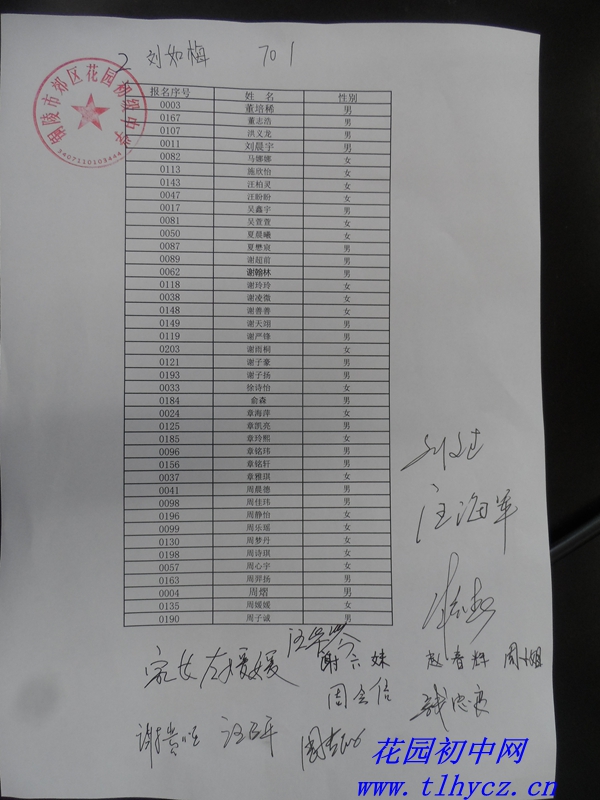 2 刘如梅 701
铜陵市郊区花园初级中学
3407110103444
报名序号 姓 名 性别
0003 董培稀 男
0167 董志浩 男
0107 洪义龙 男
0011 刘晨宇 男
0082 马娜娜 女
0113 施欣怡 女
0143 汪柏灵 女
0047 汪盼盼 女
0017 吴鑫宇 男
0081 吴萱萱 女
0050 夏晨曦 女
0087 夏懋 男
0089 谢超前 男
0062 谢翰林 男
0118 谢玲玲 女
0038 谢凌微 女
0148 谢善善 女
0149 谢天翊 男
0119 谢严锋 男
0203 谢雨桐 女
0121 谢子豪 男
0193 谢子扬 男
0033 徐诗怡 女
0184 俞森 男
0024 章海萍 女
0125 章凯亮 男
0185 章玲熙 女
0096 章铭玮 男
0156 章铭轩 男
0037 章雅琪 女
0041 周晨德 男
0098 周佳玮 男
0196 周静怡 女
0099 周乐瑶 女
0130 周梦丹 女
0198 周诗琪 女
0057 周心宇 女
0163 周羿扬 男
0004 周熠 男
0135 周媛媛 女
0190 周子诚 男
汪海军
左媛媛
谢六妹 赵春辉 周小姐
周会信
花园初中网
www.tlhycz.cn